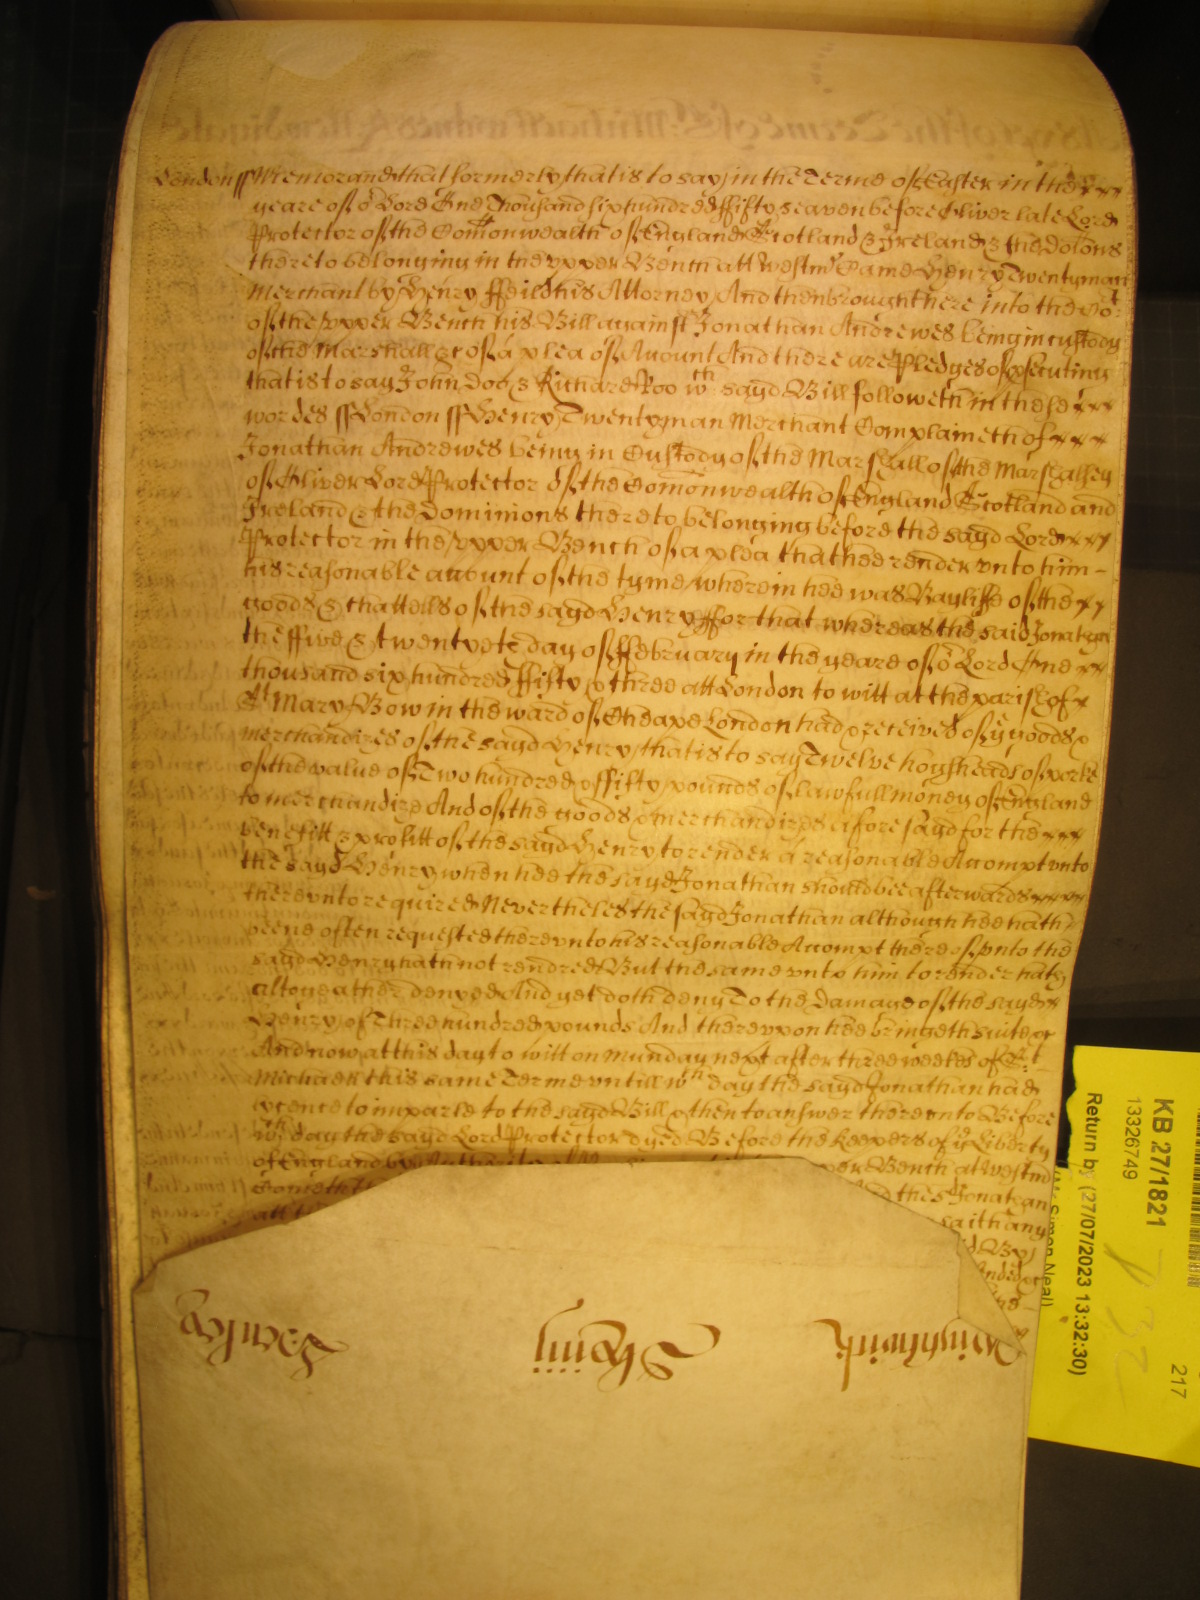 London ss Memorand that formerly that is to say in the Terme of Easter in the
yeare of or Lord One Thousand six hundred ffifty seaven before Oliver late Lord
Protector of the Comonwealth of England Scotland & Ireland & the Dominions
thereto belonging in the upper Bench att Westmr Came Henry Twentyman
Merchant by Henry ffeild his Attorney And then brought here into the Cort
of the upper Bench his Bill against Jonathan Andrewes being in custody
of the Marshall &c of a plea of Account And there are Pledges of prosecuting
that is to say John Doo & Richard Roo wch sayd Bill followeth in these
wordes ss London ss Henry Twentyman Merchant Complaineth of
Jonathan Andrewes being in Custody of the Marshall of the Marshalsey
of Oliver Lord Protector of the Comonwealth of England Scotland and
Ireland & the Dominions thereto belonging before the sayd Lord
Protector in the upper Bench of a plea that hee render unto him
his reasonable account of the tyme wherein hee was Bayliffe of the
goods & chattells of the sayd Henry ffor that whereas the said Jonathan
the ffive & twentyeth day of ffebruary in the yeare of or Lord One
thousand six hundred ffifty & three att London to witt at the parish of
St Mary Bow in the ward of Cheape London had & received of ye goods &
merchandizes of the sayd Henry that is to say Twelve hogsheads of porke
of the value of Two hundred & ffifty pounds of lawfull money of England
to merchandize And of the goods & merchandizes aforesayd for the
benefitt & profitt of the sayd Henry to render a reasonable Accompt unto
the sayd Henry when hee the sayd Jonathan should bee afterwards
thereunto required Neverthelesthe sayd Jonathan although hee hath
beene often requested thereunto his reasonable Accompt thereof unto the
sayd Henry hath not rendred But the same unto him to render hath
altogeather denyed And yet doth deny To the Damage of the sayd
Henry of Three hundred pounds And thereupon hee bringeth suite &c
And now at this day to witt on Munday next after three weekes of St
Michaell this same Terme untill wch day the sayd Jonathan had
lycence to imparle to the sayd Bill & then to answer thereunto Before
wch day the sayd Lord Protector dyed Before the Keepers of ye Liberty
of England by Authority of upper Bench at Westmr
Cometh the Jonathan
saith any
Wightwick Skynn Henley
KB 27/1821
13326749
Return by (27/07/2023 13:32:30)
(Mr Simon Neal)
217